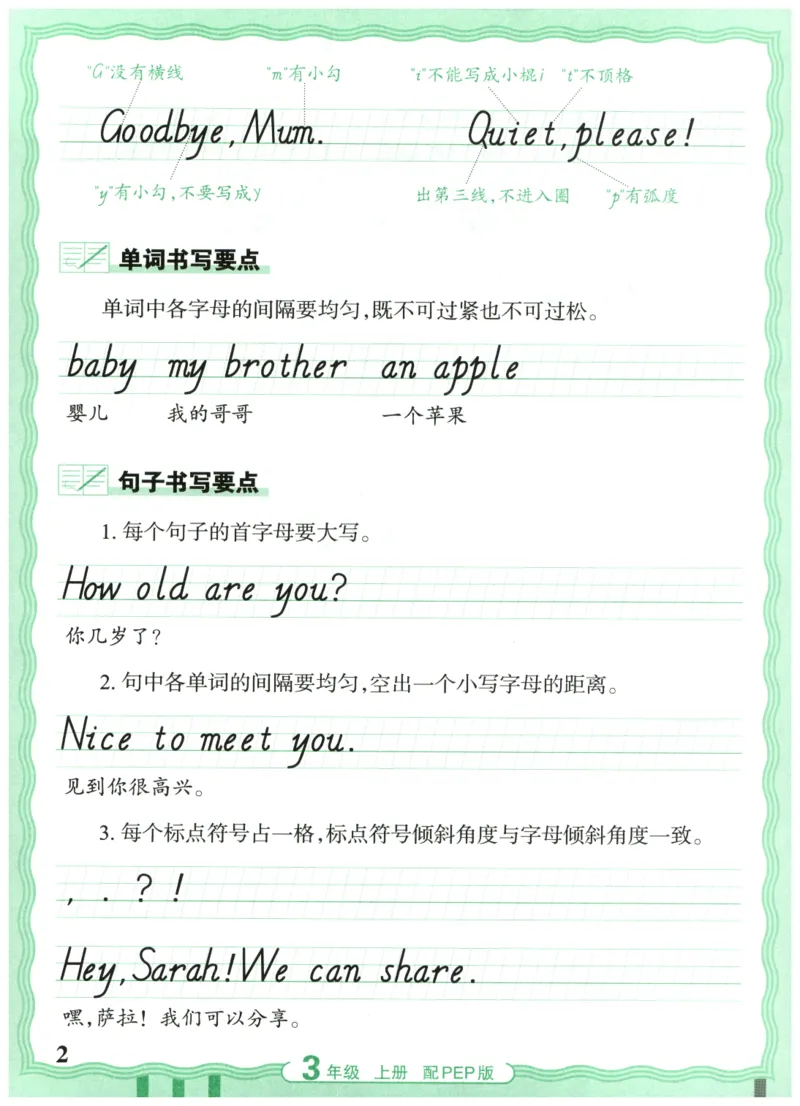 "G"没有横线 "m"有小勾 "i"不能写成小棍i "t"不顶格
Goodbye, Mum. Quiet, please!
"y"有小勾,不要写成y 出第三线,不进入圈 "p"有弧度
单词书写要点
单词中各字母的间隔要均匀,既不可过紧也不可过松。
baby my brother an apple
婴儿 我的哥哥 一个苹果
句子书写要点
1. 每个句子的首字母要大写。
How old are you?
你几岁了?
2. 句中各单词的间隔要均匀,空出一个小写字母的距离。
Nice to meet you.
见到你很高兴。
3. 每个标点符号占一格,标点符号倾斜角度与字母倾斜角度一致。
, . ? !
Hey, Sarah! We can share.
嘿,萨拉! 我们可以分享。
2
3年级 上册 配PEP版